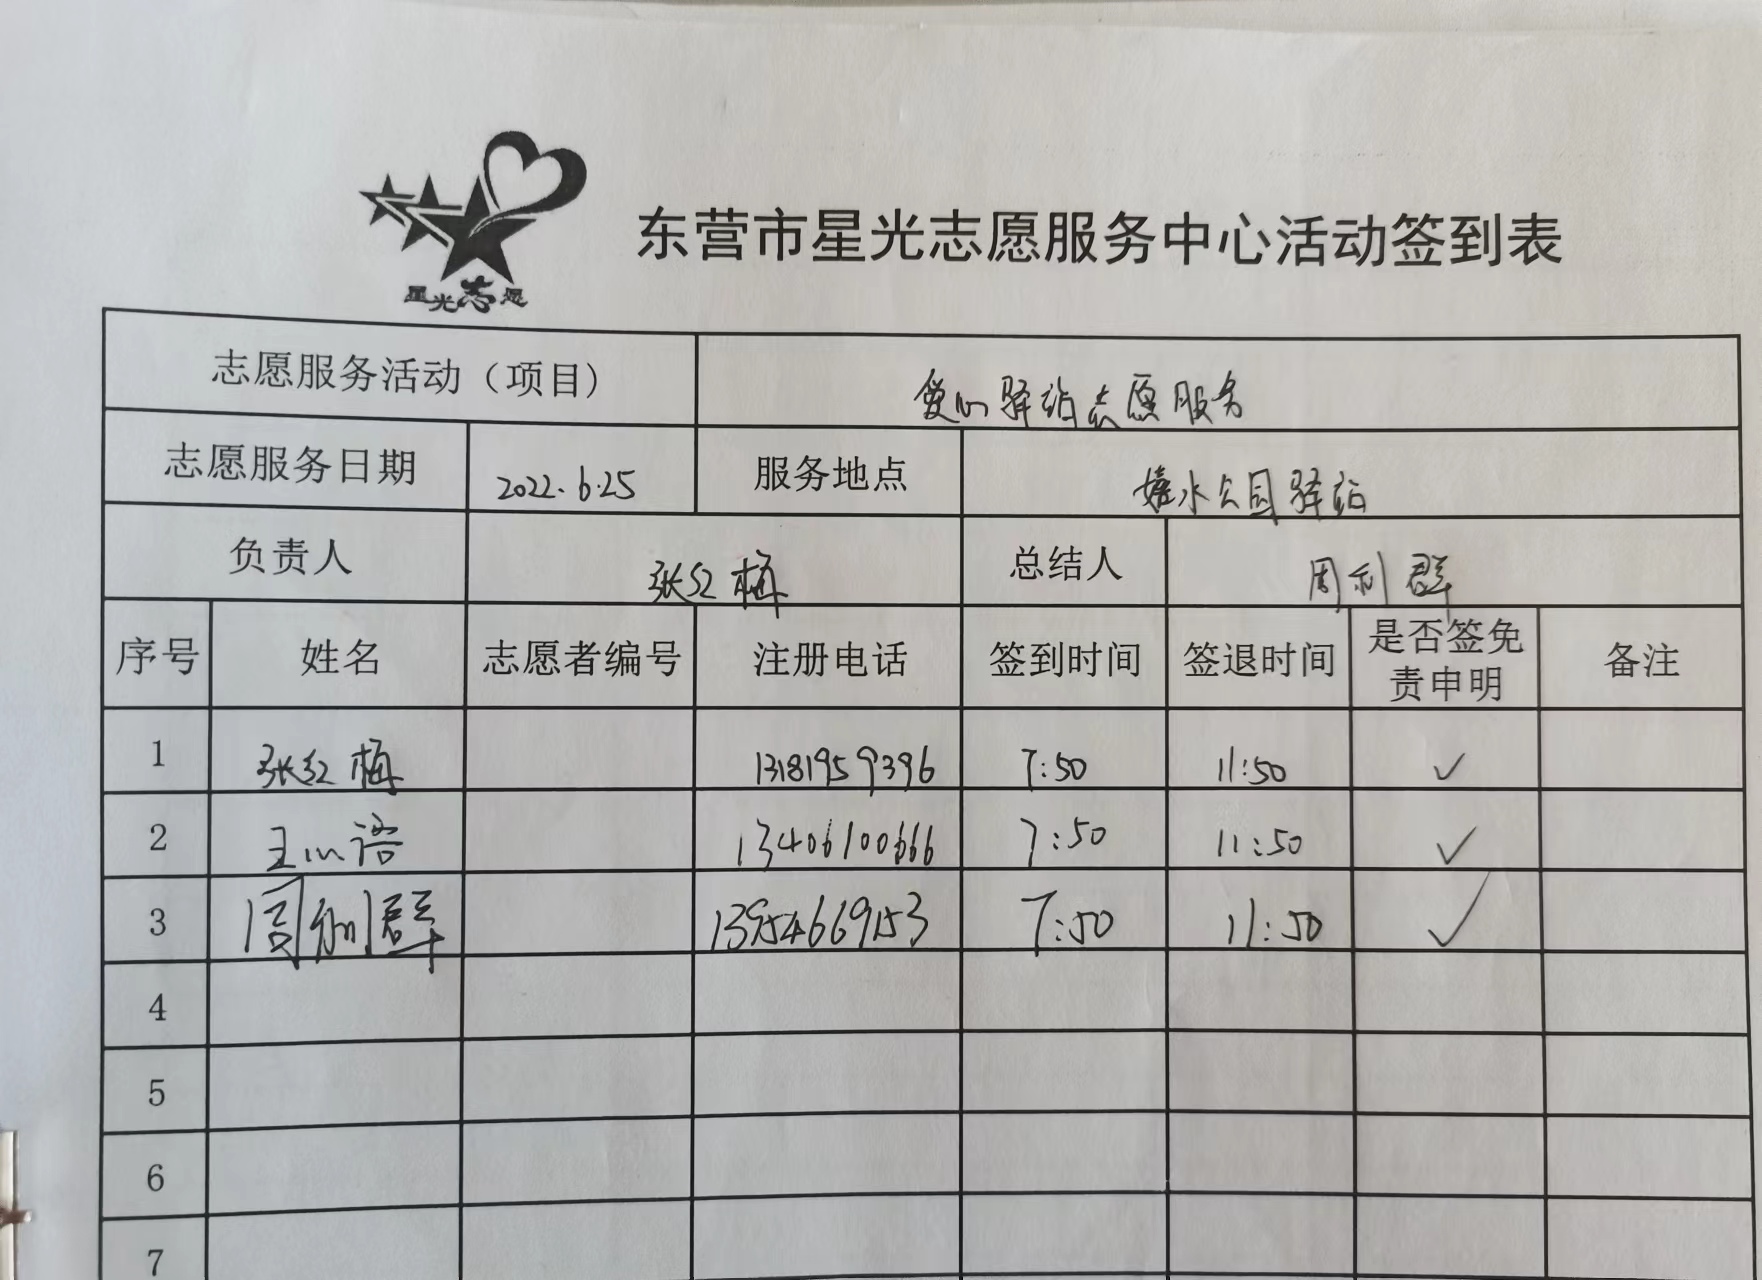 星光志愿
东营市星光志愿服务中心活动签到表
志愿服务活动（项目） 爱心驿站志愿服务
志愿服务日期 2022.6.25 服务地点 嬉水公园驿站
负责人 张红梅 总结人 周利群
序号 姓名 志愿者编号 注册电话 签到时间 签退时间 是否签免责申明 备注
1 张红梅 13181959396 7:50 11:50 ✓
2 王心语 13406100666 7:50 11:50 ✓
3 周利群 13954669153 7:50 11:50 ✓
4
5
6
7